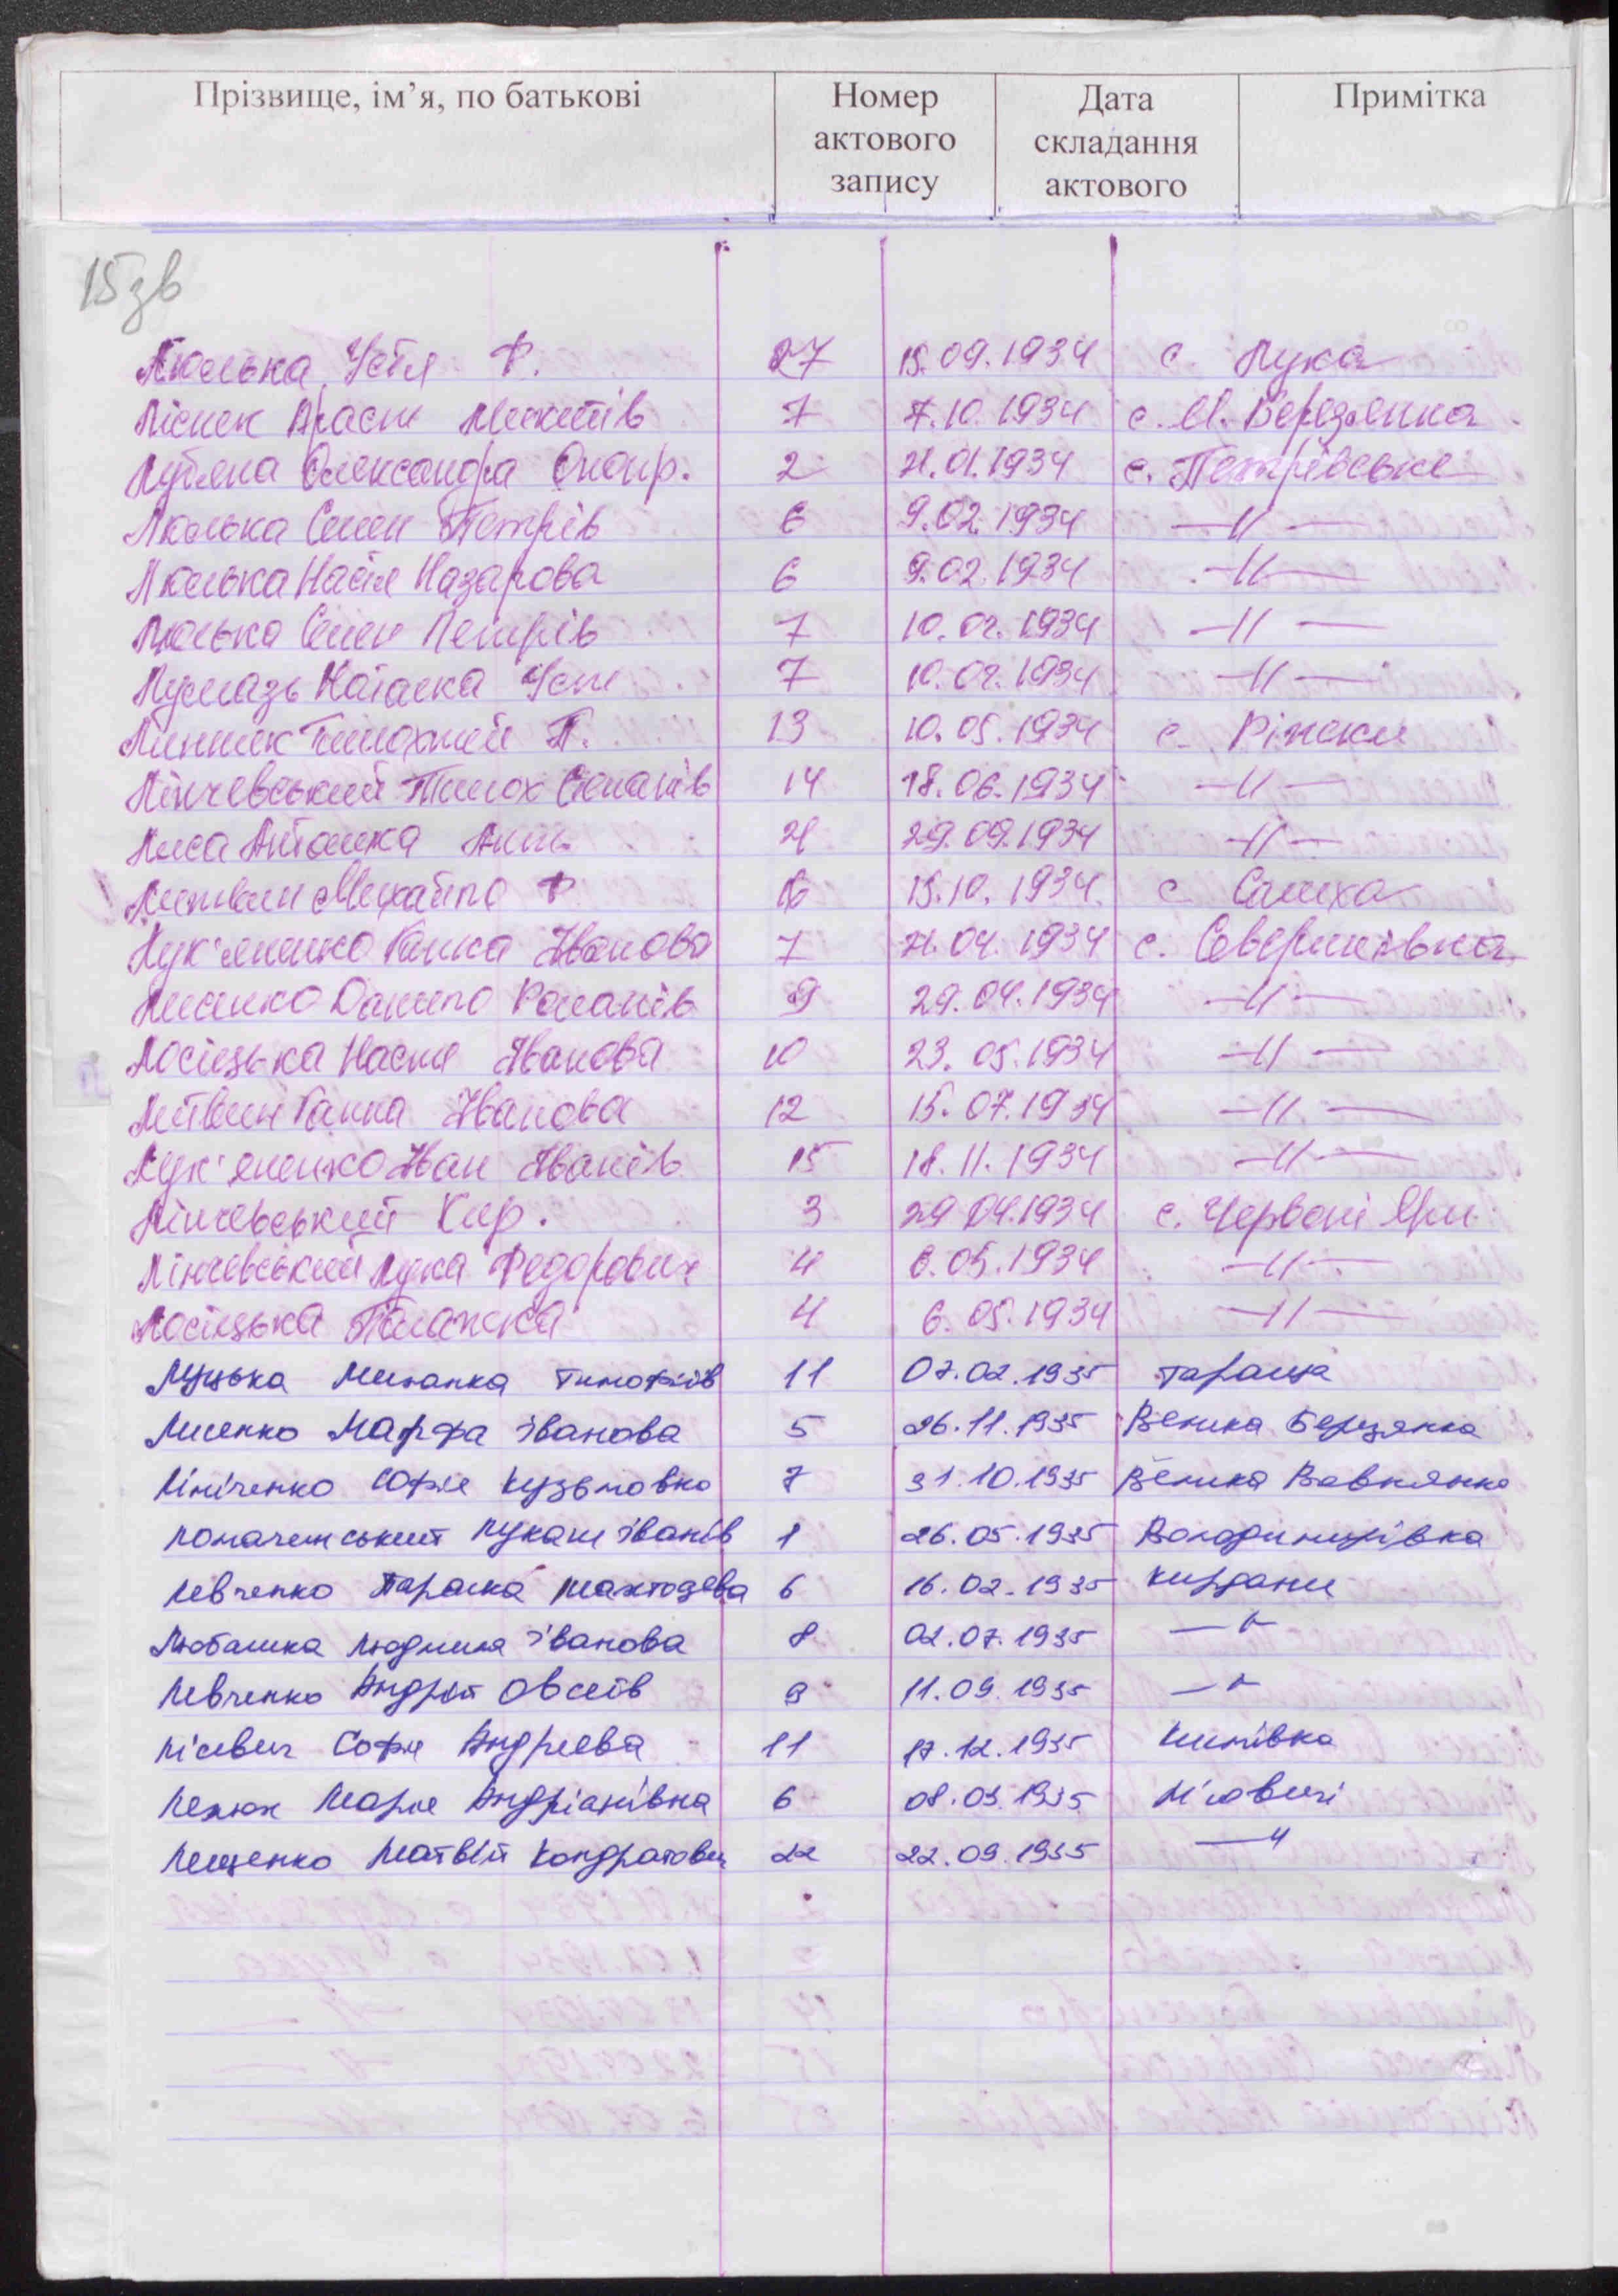 Прізвище, ім’я, по батькові Номер актового запису Дата складання актового Примітка
15зв
Люлька Устя Ф. 27 15.09.1934 с. Лука
Лісник Араст Микитів 7 7.10.1934 с. М. Березянка
Луб'яна Олександра Оноир. 2 21.01.1934 с. Петрівське
Люлька Семен Петрів 6 9.02.1934 —//—
Люлька Настя Назарова 6 9.02.1934 —//—
Люлька Семен Петрів 7 10.02.1934 —//—
Лумазь Наталка Уст 7 10.02.1934 —//—
Линник Тимофтей П. 13 10.05.1934 с. Ріжски
Лінчевський Тимох Степанів 14 18.06.1934 —//—
Лиса Антонка Ант. 21 29.09.1934 —//—
Литвин Михайло Ф 16 15.10.1934 с Салиха
Лук'яненко Ганка Іванова 7 21.04.1934 с. Северинівка
Лисенко Данило Романів 9 29.04.1934 —//—
Лосіцька Настя Іванова 10 23.05.1934 —//—
Литвин Ганна Іванова 12 15.07.1934 —//—
Лук'яненко Іван Іванів 15 18.11.1934 —//—
Лінчевський Кир. 3 29 04.1934 с. Червоні Яри
Лінчевський Лука Федорович 4 6.05.1934 —//—
Лосіцька Палажка 4 6.05.1934 —//—
Луцька Миланка Тимофіїв 11 07.02.1935 Тараща
Лисенко Марфа Іванова 5 26.11.1935 Велика Березянка
Лініченко Софія Кузьмовна 7 31.10.1935 Велика Вовнянка
Ломачинський Лукаш Іванів 1 26.05.1935 Володимирівка
Левченко Параска 6 16.02.1935 Кирдани
Любашка Людмила Іванова 8 02.07.1935 —"
Левченко Андрій Овсеїв 9 11.09.1935 —"
Лісевич Софія Андреева 11 17.12.1935
Лелюк Марія Андріанівна 6 08.03.1935 Лісовичі
Лещенко Матвій Кондратович 22 22.09.1935 —"